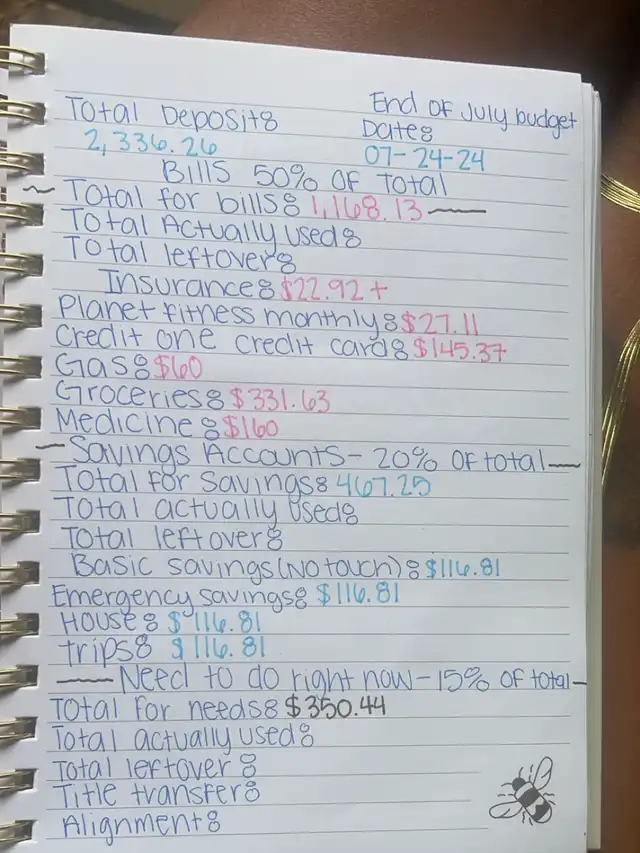 End of July budget
Total Deposit:
Date:
2,336.26
07-24-24
Bills 50% of total
~ Total for bills: 1,168.13 —
Total Actually used:
Total leftover:
Insurance: $22.92 +
Planet fitness monthly: $27.11
Credit one credit card: $145.37
Gas: $60
Groceries: $331.63
Medicine: $160
— Savings Accounts - 20% of total —
Total for savings: 467.25
Total actually used:
Total leftover:
Basic savings (no touch): $116.81
Emergency savings: $116.81
House: $116.81
trips: $116.81
— Need to do right now - 15% of total -
Total for needs: $350.44
Total actually used:
Total leftover:
Title transfer:
Alignment: